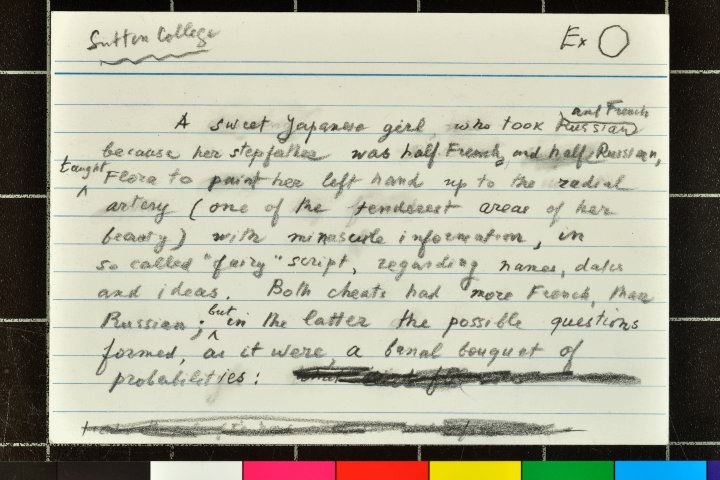 Sutton College
Ex
and French
A sweet Japanese girl, who took Russian
because her stepfather was half French and half Russian,
taught
Flora to paint her left hand up to the radial
artery (one of the tenderest areas of her
beauty) with minuscule information, in
so called "fairy" script, regarding names, dates
and ideas. Both cheats had more French, than
but
Russian; in the latter the possible questions
formed, as it were, a banal bouquet of
probabilities: